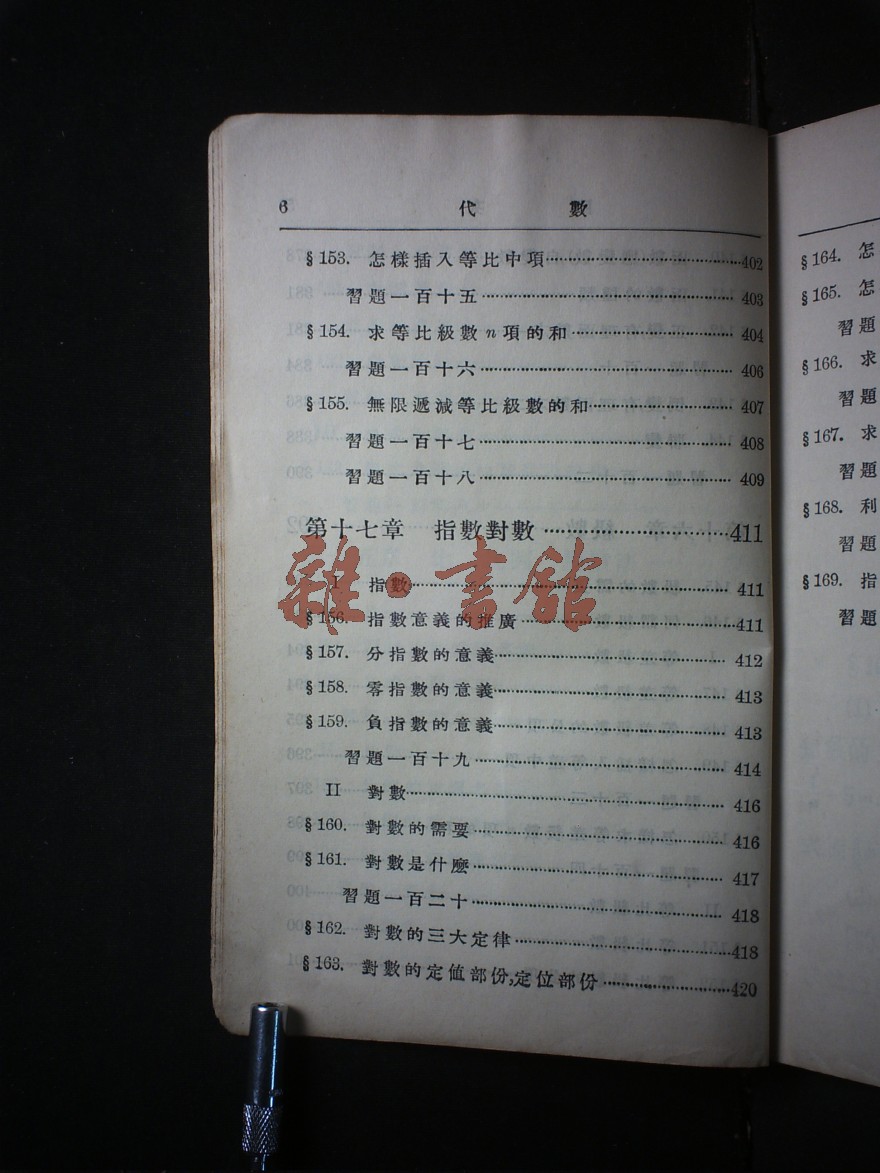 6 代 數
§153. 怎樣插入等比中項……402
習題一百十五……403
§154. 求等比級數n項的和……404
習題一百十六……406
§155. 無限遞減等比級數的和……407
習題一百十七……408
習題一百十八……409
第十七章 指數對數……411
I 指數……411
§156. 指數意義的推廣……411
§157. 分指數的意義……412
§158. 零指數的意義……413
§159. 負指數的意義……413
習題一百十九……414
II 對數……416
§160. 對數的需要……416
§161. 對數是什麽……417
習題一百二十……418
§162. 對數的三大定律……418
§163. 對數的定値部份,定位部份……420
雜·書館
§164. 怎
§165. 怎
習題
§166. 求
習題
§167. 求
習題
§168. 利
習題
§169. 指
習題